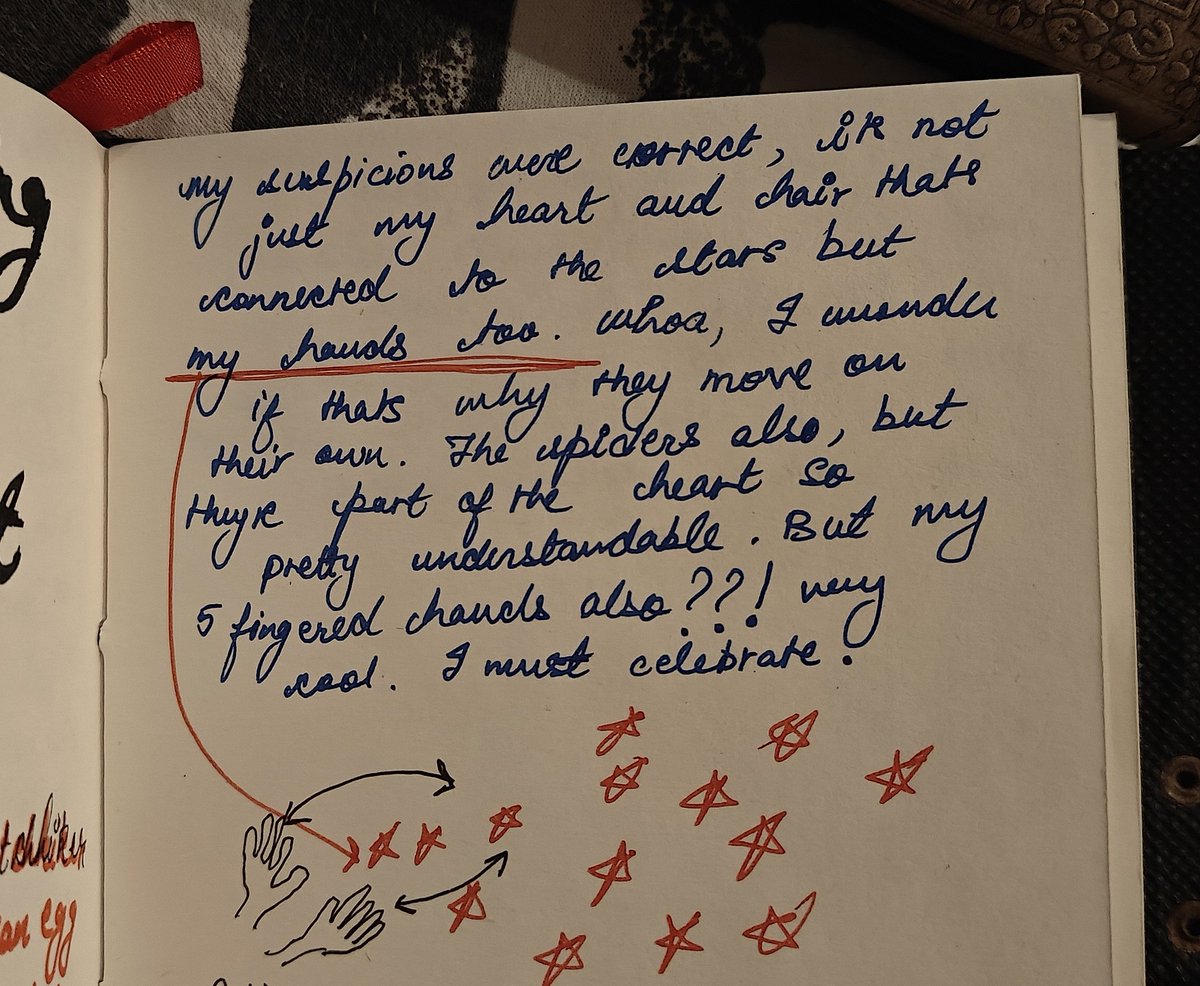 my suspicions were correct, its not
just my heart and hair thats
connected to the stars but
my hands too. whoa, I wonder
if thats why they move on
their own. The spiders also, but
theyre part of the heart so
pretty understandable. But my
5 fingered hands also??! very
cool. I must celebrate.
egg